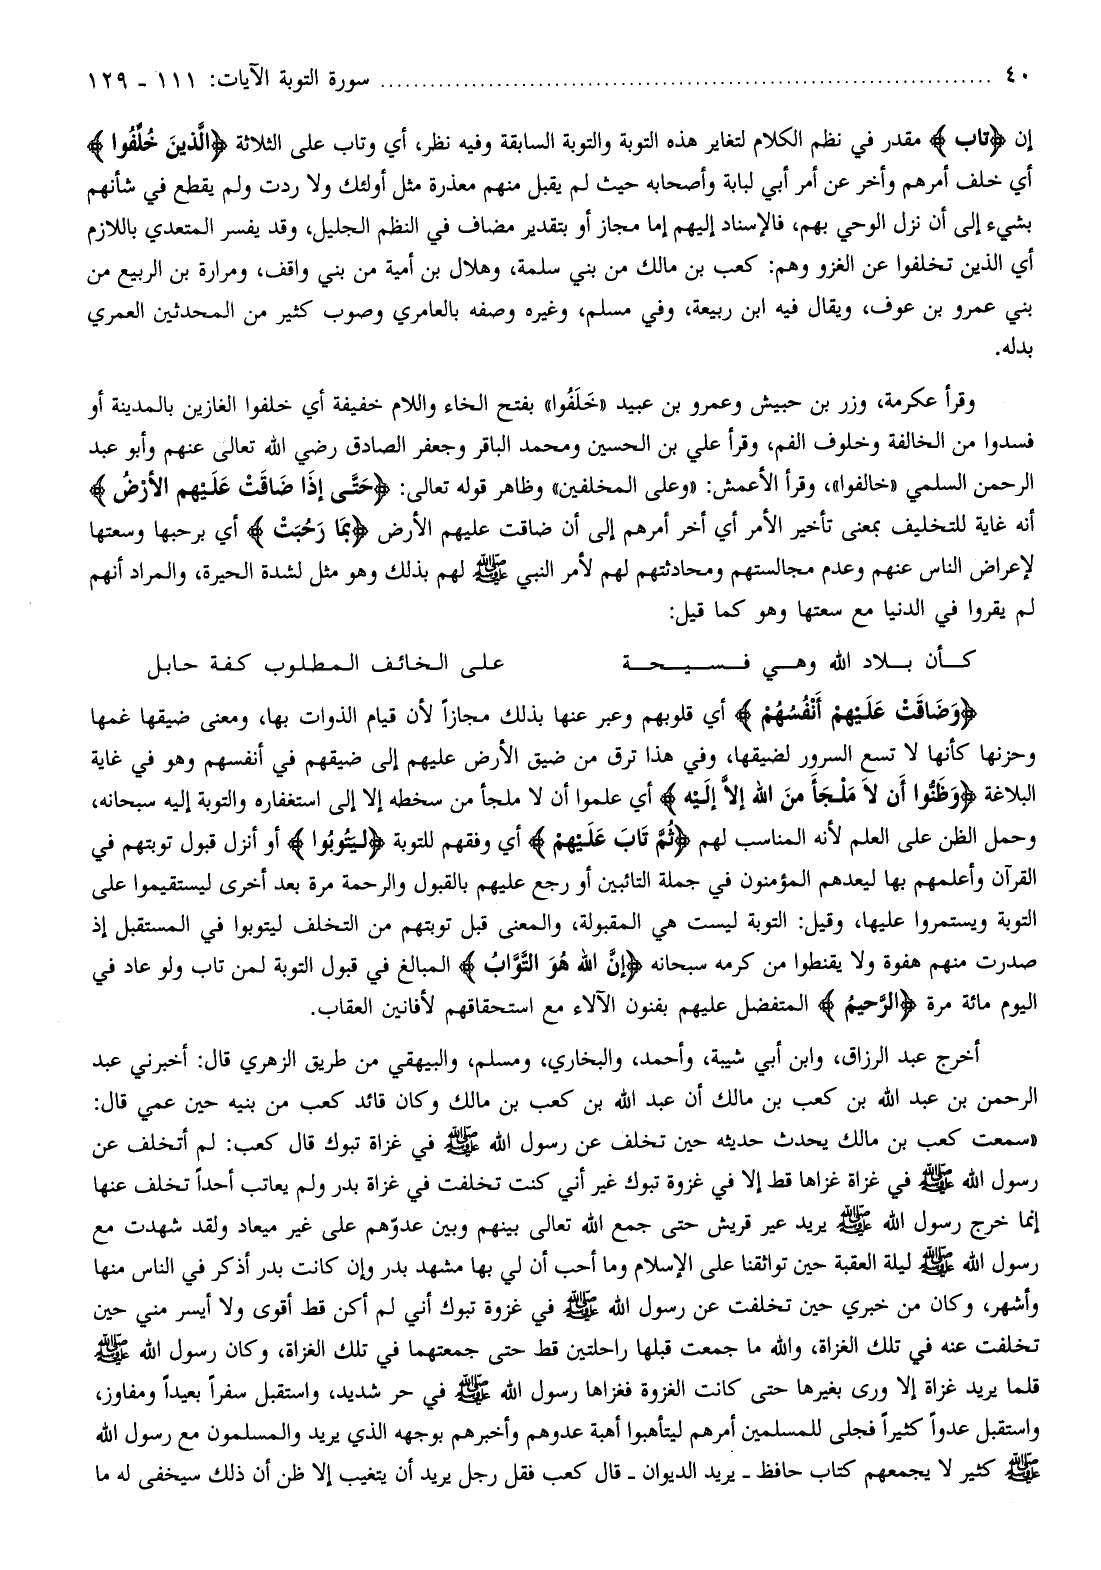 ٤٠ ............ سورة التوبة الآيات: ١١١ ـ ١٢٩
إن ﴿تاب﴾ مقدر في نظم الكلام لتغاير هذه التوبة والتوبة السابقة وفيه نظر، أي وتاب على الثلاثة ﴿الَّذينَ خُلِّفُوا﴾
أي خلف أمرهم وأخر عن أمر أبي لبابة وأصحابه حيث لم يقبل منهم معذرة مثل أولئك ولا ردت ولم يقطع في شأنهم
بشيء إلى أن نزل الوحي بهم، فالإسناد إليهم إما مجاز أو بتقدير مضاف في النظم الجليل، وقد يفسر المتعدي باللازم
أي الذين تخلفوا عن الغزو وهم: كعب بن مالك من بني سلمة، وهلال بن أمية من بني واقف، ومرارة بن الربيع من
بني عمرو بن عوف، ويقال فيه ابن ربيعة، وفي مسلم، وغيره وصفه بالعامري وصوب كثير من المحدثين العمري
بدله.
وقرأ عكرمة، وزر بن حبيش وعمرو بن عبيد «خَلَفُوا» بفتح الخاء واللام خفيفة أي خلفوا الغازين بالمدينة أو
فسدوا من الخالفة وخلوف الفم، وقرأ علي بن الحسين ومحمد الباقر وجعفر الصادق رضي الله تعالى عنهم وأبو عبد
الرحمن السلمي «خالفوا»، وقرأ الأعمش: «وعلى المخلفين» وظاهر قوله تعالى: ﴿حَتَّى إذَا ضَاقَتْ عَلَيْهِم الأَرْضُ﴾
أنه غاية للتخليف بمعنى تأخير الأمر أي أخر أمرهم إلى أن ضاقت عليهم الأرض ﴿بِمَا رَحُبَتْ﴾ أي برحبها وسعتها
لإعراض الناس عنهم وعدم مجالستهم ومحادثتهم لهم لأمر النبي ﷺ لهم بذلك وهو مثل لشدة الحيرة، والمراد أنهم
لم يقروا في الدنيا مع سعتها وهو كما قيل:
كأن بلاد الله وهي فسيحة على الخائف المطلوب كفة حابل
﴿وَضَاقَتْ عَلَيْهِمْ أَنْفُسُهُمْ﴾ أي قلوبهم وعبر عنها بذلك مجازاً لأن قيام الذوات بها، ومعنى ضيقها غمها
وحزنها كأنها لا تسع السرور لضيقها، وفي هذا ترق من ضيق الأرض عليهم إلى ضيقهم في أنفسهم وهو في غاية
البلاغة ﴿وَظَنُّوا أَن لاَ مَلْجَأَ منَ الله إلاَّ إلَيْه﴾ أي علموا أن لا ملجأ من سخطه إلا إلى استغفاره والتوبة إليه سبحانه،
وحمل الظن على العلم لأنه المناسب لهم ﴿ثُمَّ تَابَ عَلَيْهِمْ﴾ أي وفقهم للتوبة ﴿ليَتُوبُوا﴾ أو أنزل قبول توبتهم في
القرآن وأعلمهم بها ليعدهم المؤمنون في جملة التائبين أو رجع عليهم بالقبول والرحمة مرة بعد أخرى ليستقيموا على
التوبة ويستمروا عليها، وقيل: التوبة ليست هي المقبولة، والمعنى قبل توبتهم من التخلف ليتوبوا في المستقبل إذ
صدرت منهم هفوة ولا يقنطوا من كرمه سبحانه ﴿إنَّ الله هُوَ التَّوَّابُ﴾ المبالغ في قبول التوبة لمن تاب ولو عاد في
اليوم مائة مرة ﴿الرَّحيمُ﴾ المتفضل عليهم بفنون الآلاء مع استحقاقهم لأفانين العقاب.
أخرج عبد الرزاق، وابن أبي شيبة، وأحمد، والبخاري، ومسلم، والبيهقي من طريق الزهري قال: أخبرني عبد
الرحمن بن عبد الله بن كعب بن مالك أن عبد الله بن كعب بن مالك وكان قائد كعب من بنيه حين عمي قال:
«سمعت كعب بن مالك يحدث حديثه حين تخلف عن رسول الله ﷺ في غزاة تبوك قال كعب: لم أتخلف عن
رسول الله ﷺ في غزاة غزاها قط إلا في غزوة تبوك غير أني كنت تخلفت في غزاة بدر ولم يعاتب أحداً تخلف عنها
إنما خرج رسول الله ﷺ يريد عير قريش حتى جمع الله تعالى بينهم وبين عدوّهم على غير ميعاد ولقد شهدت مع
رسول الله ﷺ ليلة العقبة حين تواثقنا على الإسلام وما أحب أن لي بها مشهد بدر وإن كانت بدر أذكر في الناس منها
وأشهر، وكان من خبري حين تخلفت عن رسول الله ﷺ في غزوة تبوك أني لم أكن قط أقوى ولا أيسر مني حين
تخلفت عنه في تلك الغزاة، والله ما جمعت قبلها راحلتين قط حتى جمعتهما في تلك الغزاة، وكان رسول الله ﷺ
قلما يريد غزاة إلا ورى بغيرها حتى كانت الغزوة فغزاها رسول الله ﷺ في حر شديد، واستقبل سفراً بعيداً ومفاوز،
واستقبل عدواً كثيراً فجلى للمسلمين أمرهم ليتأهبوا أهبة عدوهم وأخبرهم بوجهه الذي يريد والمسلمون مع رسول الله
ﷺ كثير لا يجمعهم كتاب حافظ ـ يريد الديوان ـ قال كعب فقل رجل يريد أن يتغيب إلا ظن أن ذلك سيخفى له ما